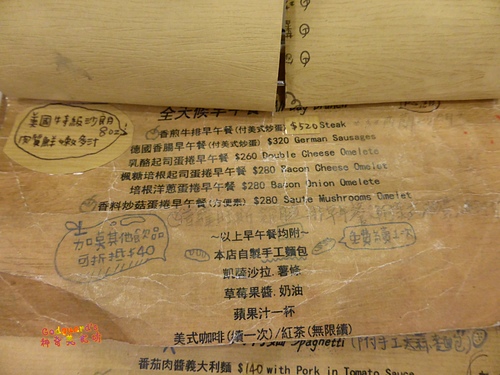 全天候早午餐
美國牛特級沙朗
8oz
肉質鮮嫩多汁
香煎牛排早午餐(付美式炒蛋) $520 Steak
德國香腸早午餐(付美式炒蛋) $320 German Sausages
乳酪起司蛋捲早午餐 $260 Double Cheese Omelete
楓糖培根起司蛋捲早午餐 $280 Bacon Cheese Omelet
培根洋蔥蛋捲早午餐 $280 Bacon Union Omelete
香料炒菇蛋捲早午餐(方便素) $280 Saute Mushrooms Omelet
~以上早午餐均附~
加桌其他飲品
可折抵$40
本店自製手工麵包
免費續一次
凱薩沙拉.薯條
草莓果醬.奶油
蘋果汁一杯
美式咖啡(續一次)/紅茶(無限續)
Spaghetti
番茄肉醬義大利麵 $140 with Pork in Tomato Sauce